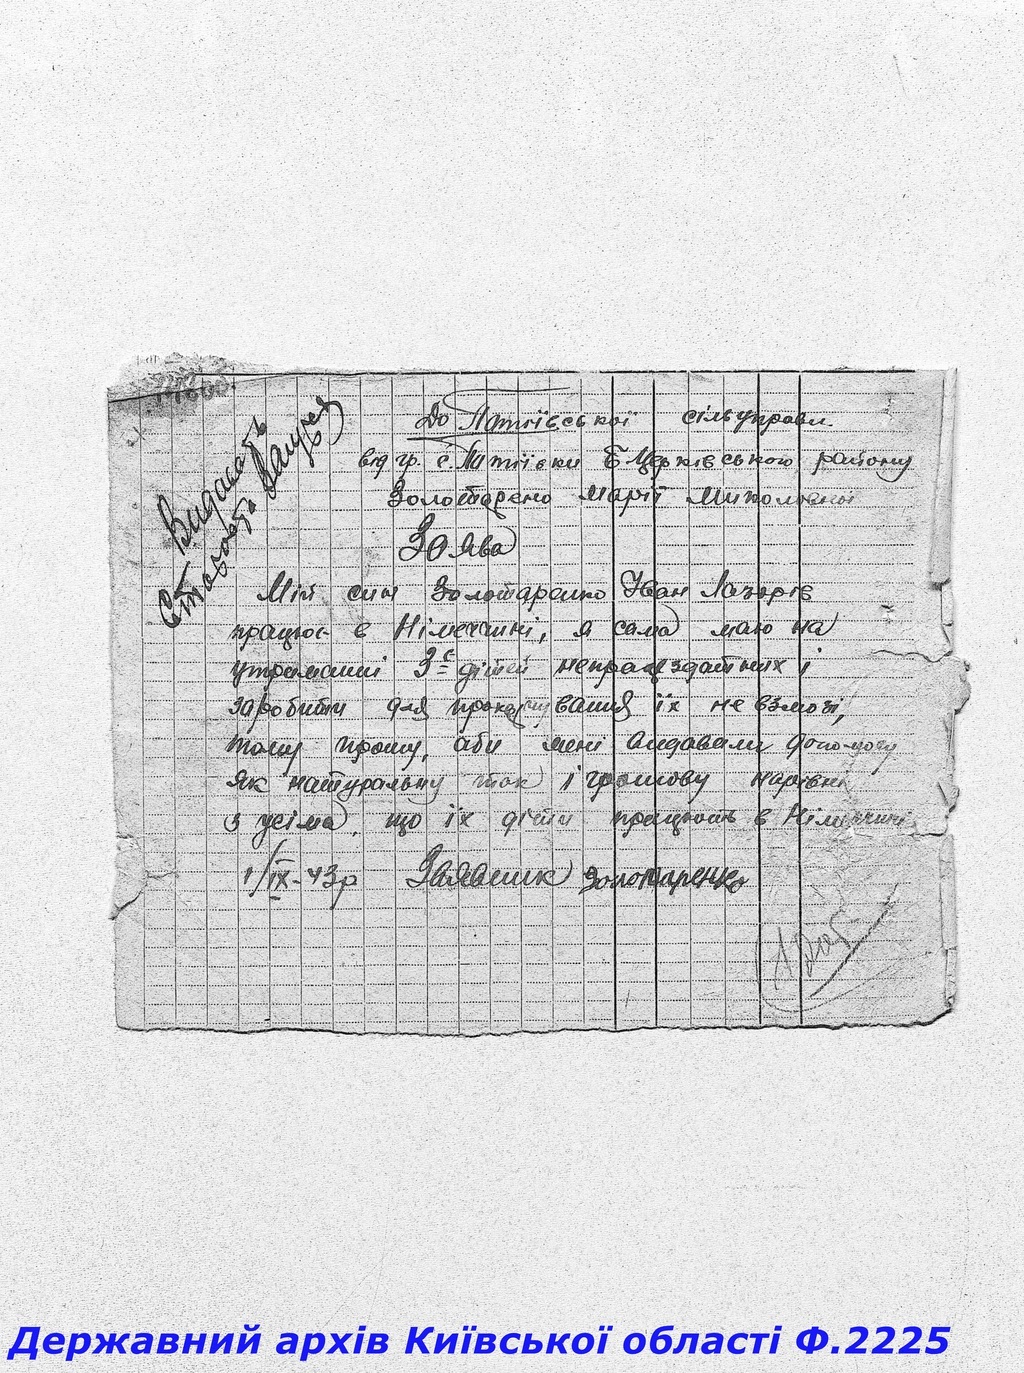 Видавать
Староста
До сільуправи
від гр. с. Б Церківського району
Золотарено Марії Миколаєвни
Заява
Мій син Золотаренко Іван Лазорів
працює в Німеччині, я сама маю на
утриманні 3є дітей непрацездатних і
заробити для прокормування їх не взмозі,
тому прошу, аби мені видавали допомогу
як натуральну так і грошову нарівні
з усіма, що їх діти працюють в Німеччині
1/IX-43р Заявник Золотаренко
Державний архів Київської області Ф.2225